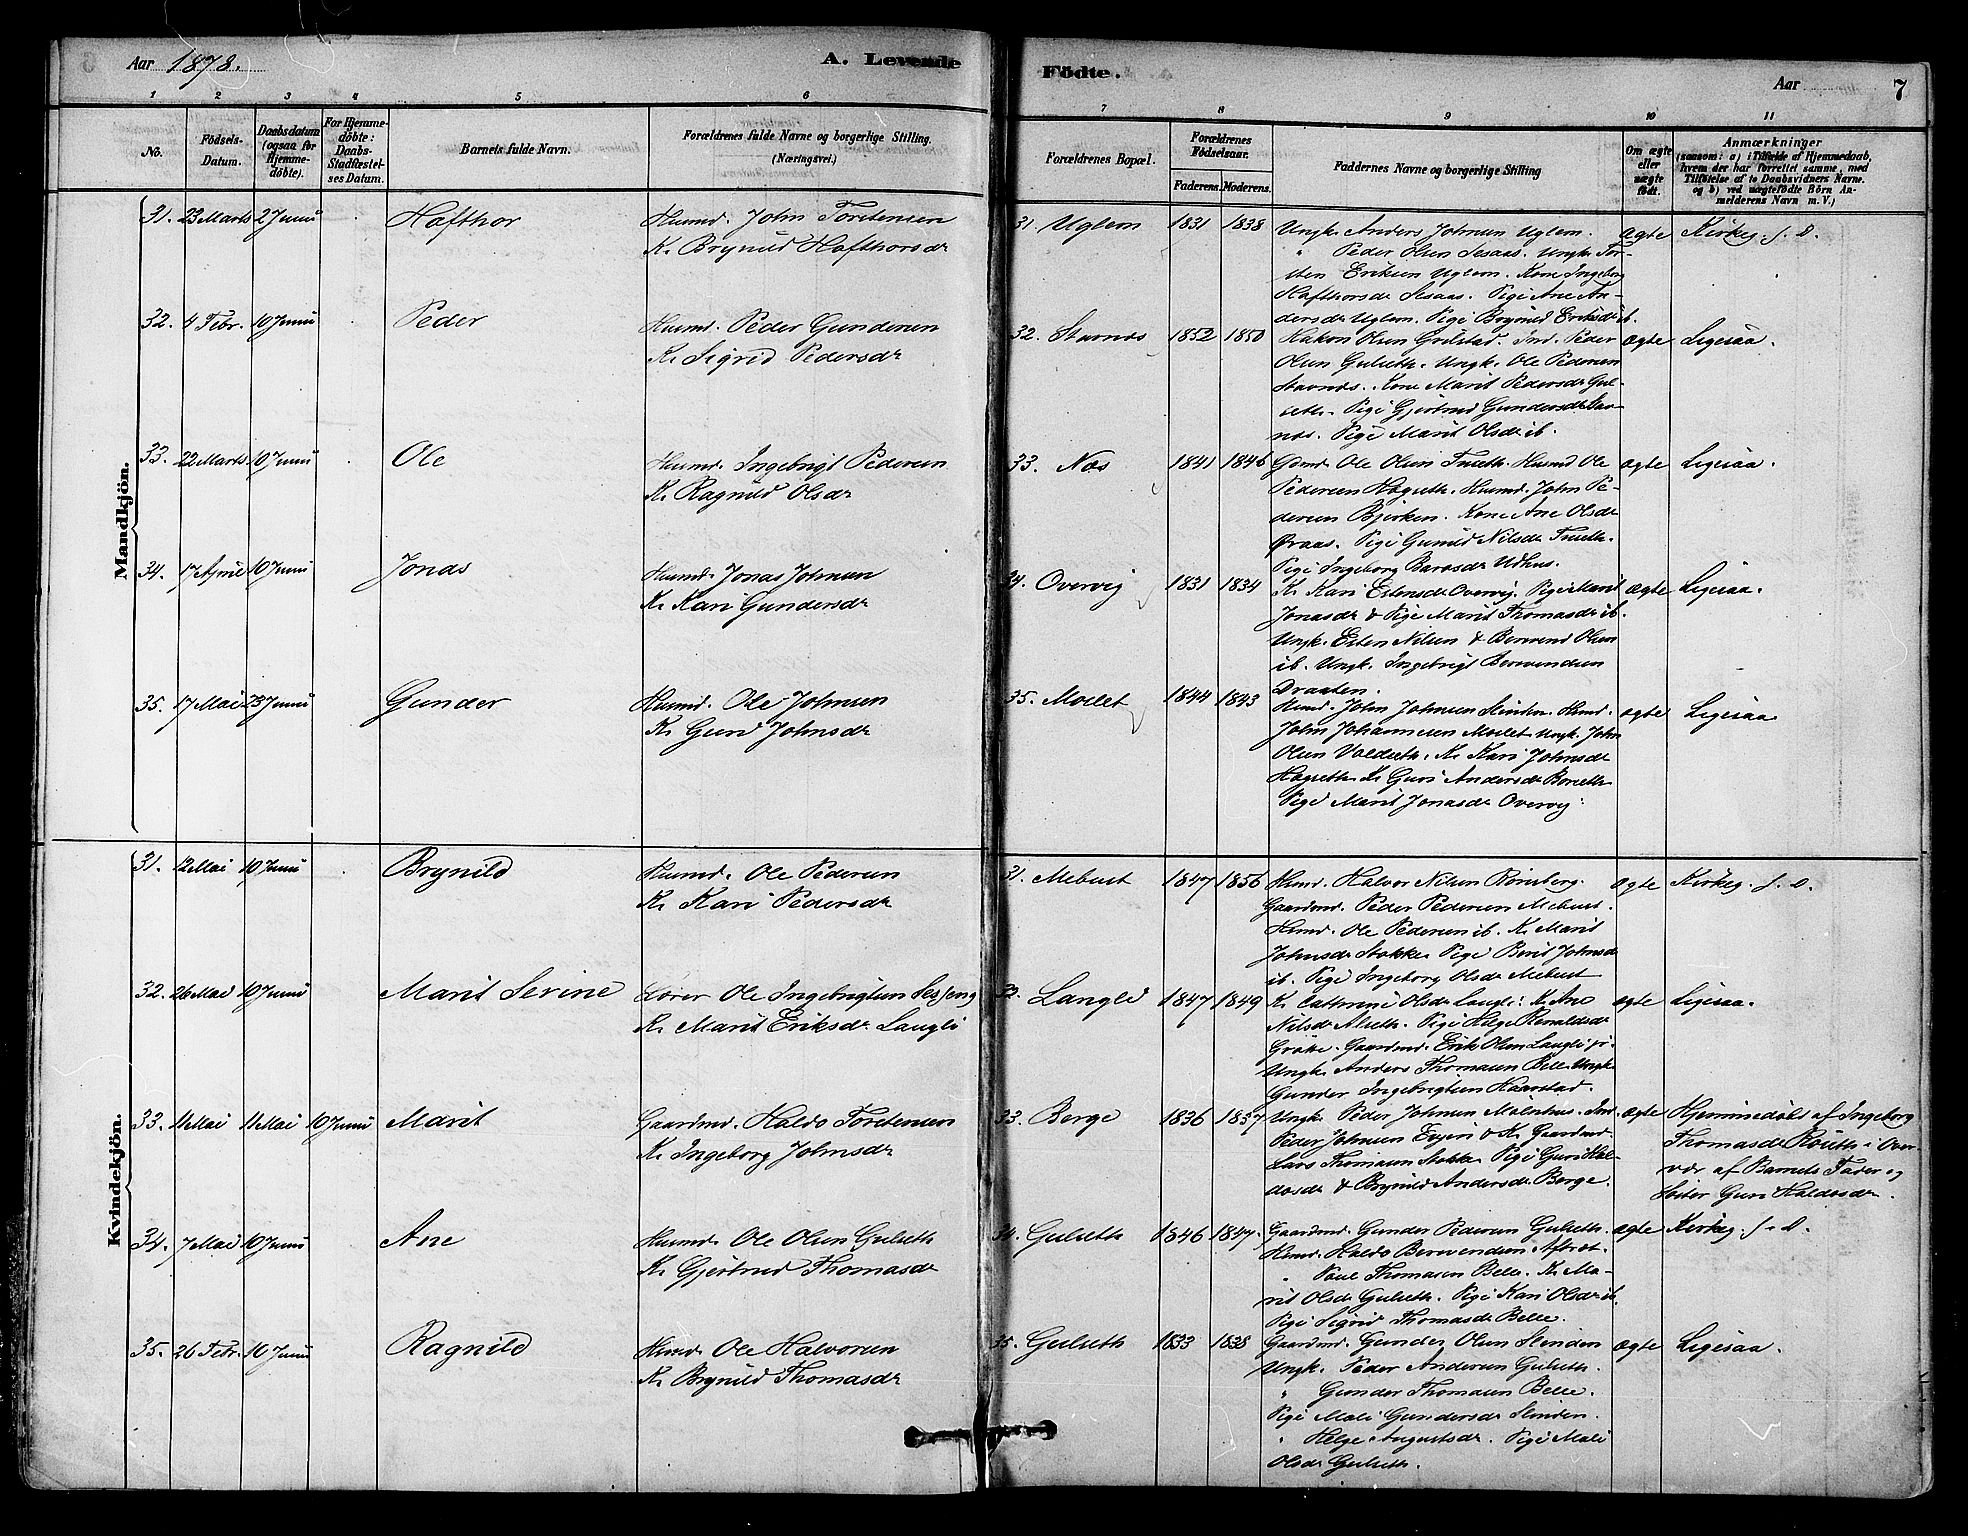 Aar 1878. A. Levende Födte. Aar 7
1 2 3 4 5 6 7 8 9 10 11
No. Födsels-Datum. Daabsdatum (ogsaa for Hjemme-döbte). For Hjemme-döbte: Daabs-Stadfæstel-ses Datum. Barnets fulde Navn. Forældrenes fulde Navne og borgerlige Stilling. (Næringsvei.) Forældrenes Bopæl. Forældrenes Födselsaar. Faderens. Moderens. Faddernes Navne og borgerlige Stilling Om ægte eller uægte födt. Anmærkninger (saasom: a) i Tilfælde af Hjemmedaab, hvem der har forrettet samme, med Tilföielse af to Daabsvidners Navne. og b) ved uægtefödte Börn An-melderens Navn m. V.)
Mandkjön.
31. 23 Marts 2 Junii Hafthor Husmd. John Torstensen
K. Brynild Hafthorsdr
31. Uglem 1831 1838 Ungk. Anders Johnsen Uglem. ægte Kirkeg. f. D.
" Peder Olsen Sesaas. Ungk. Tor-
sten Eriksen Uglem. Kone Ingeborg
Hafthorsdr Sesaas. Pige Ane An-
dersdr Uglem. Pige Brynild Eriksdr ib.
32. 4 Febr. 10 Junii Peder Husmd. Peder Gundersen
K. Sigrid Pedersdr
32. Stavnæs 1852 1850 Hakon Olsen Grilstad. Ind. Peder ægte Ligesaa.
Olsen Gulseth. Ungk. Ole Pedersen
Stavnæs. Kone Marit Pedersdr Gul-
seth. Pige Gjertrud Gundersdr Stav-
næs. Pige Marit Olsdr ib.
33. 22 Marts 10 Junii Ole Husmd. Ingebrigt Pedersen
K. Ragnild Olsdr
33. Næs 1841 1846 Gdmd. Ole Olsen Tuseth. Husmd Ole ægte Ligesaa.
Pedersen Hagseth. Husmd. John Pe-
dersen Bjerken. Kone Ane Olsdr
Øraas. Pige Gunild Nilsdr Tuseth.
Pige Ingeborg Barosdr Udhus.
34. 17 April 10 Junii Jonas Husmd. Jonas Johnsen
K. Kari Gundersdr
34. Overvig 1831 1834 K. Kari Estensdr Overvig. Pige Marit ægte Ligesaa.
Jonasdr & Pige Marit Thomasdr ib.
Ungk. Esten Nilsen & Bersvend Olsen
ib. Ungk. Ingebrigt Bersvendsen
Draaten.
35. 17 Mai 23 Junii Gunder Husmd. Ole Johnsen
K. Guri Johnsdr
35. Moslet 1844 1843 Husmd. John Johnsen Slinden. Husmd. ægte Ligesaa
John Johannesen Moslet Ungk. John
Olsen Valdseth. K. Kari Johnsdr
Hagseth. K. Guri Andersdr Borseth
Pige Marit Jonasdr Overvig.
Kvindekjön.
31. 12 Mai 10 Junii Brynild Husmd. Ole Pedersen
K. Kari Pedersdr
31. Mebust 1847 1856 Husmd. Halvor Nilsen Rønsberg. ægte Kirkeg. f. D.
Gaardmd. Peder Pedersen Mebust.
Husmd. Ole Pedersen ib. K. Marit
Johnsdr Stokke. Pige Berit Johnsdr
ib. Pige Ingeborg Olsdr Mebust
32. 26 Mai 10 Junii Marit Serine Lærer Ole Ingebrigtsen Sesseng
K. Marit Eriksdr Langli
32. Langli 1847 1849 K. Cathrine Olsdr Langli. K. Ane ægte Ligesaa.
Nilsdr Alseth. Pige Helge Ronaldsdr
Grötte. Gaardmd. Erik Olsen Langli
Ungk. Anders Thomasen Belle. Ungk.
Gunder Ingebrigtsen Haarstad.
33. 11 Mai 11 Mai 10 Junii Marit Gaardmd. Haldo Torstensen
K. Ingeborg Johnsdr
33. Berge 1836 1837 Ungk. Peder Johnsen Mælenhus. Ind. ægte Hjemmedöbt af Ingeborg
Peder Johnsen Evjen & K. Gaardmd. Thomasdr Röseth i Over-
Lars Thomasen Stokke. Pige Guri Hal- vær af Barnets Fader og
dosdr & Brynild Andersdr Berge. Söster Guri Haldosdr.
34. 7 Mai 10 Junii Ane Husmd. Ole Olsen Gulseth
K. Gjertrud Thomasdr
34. Gulseth 1846 1847. Gaardmd. Gunder Pedersen Gulseth. ægte Kirkeg. f. D.
Husmd. Haldo Bersvendsen Aftret.
" Poul Thomasen Belle. K. Ma-
rit Olsdr Gulseth. Pige Kari Olsdr ib.
Pige Sigrid Thomasdr Belle.
35. 26 Febr. 10 Junii Ragnild Husmd. Ole Halvorsen
K. Brynild Thomasdr
35. Gulseth 1833 1838 Gaardmd. Gunder Olsen Slinden ægte Ligesaa.
Ungk. Peder Andersen Gulseth.
" Gunder Thomasen Belle.
Pige Mali Gundersdr Slinden.
" Helge Augustsdr. Pige Mali
Olsdr Gulseth.